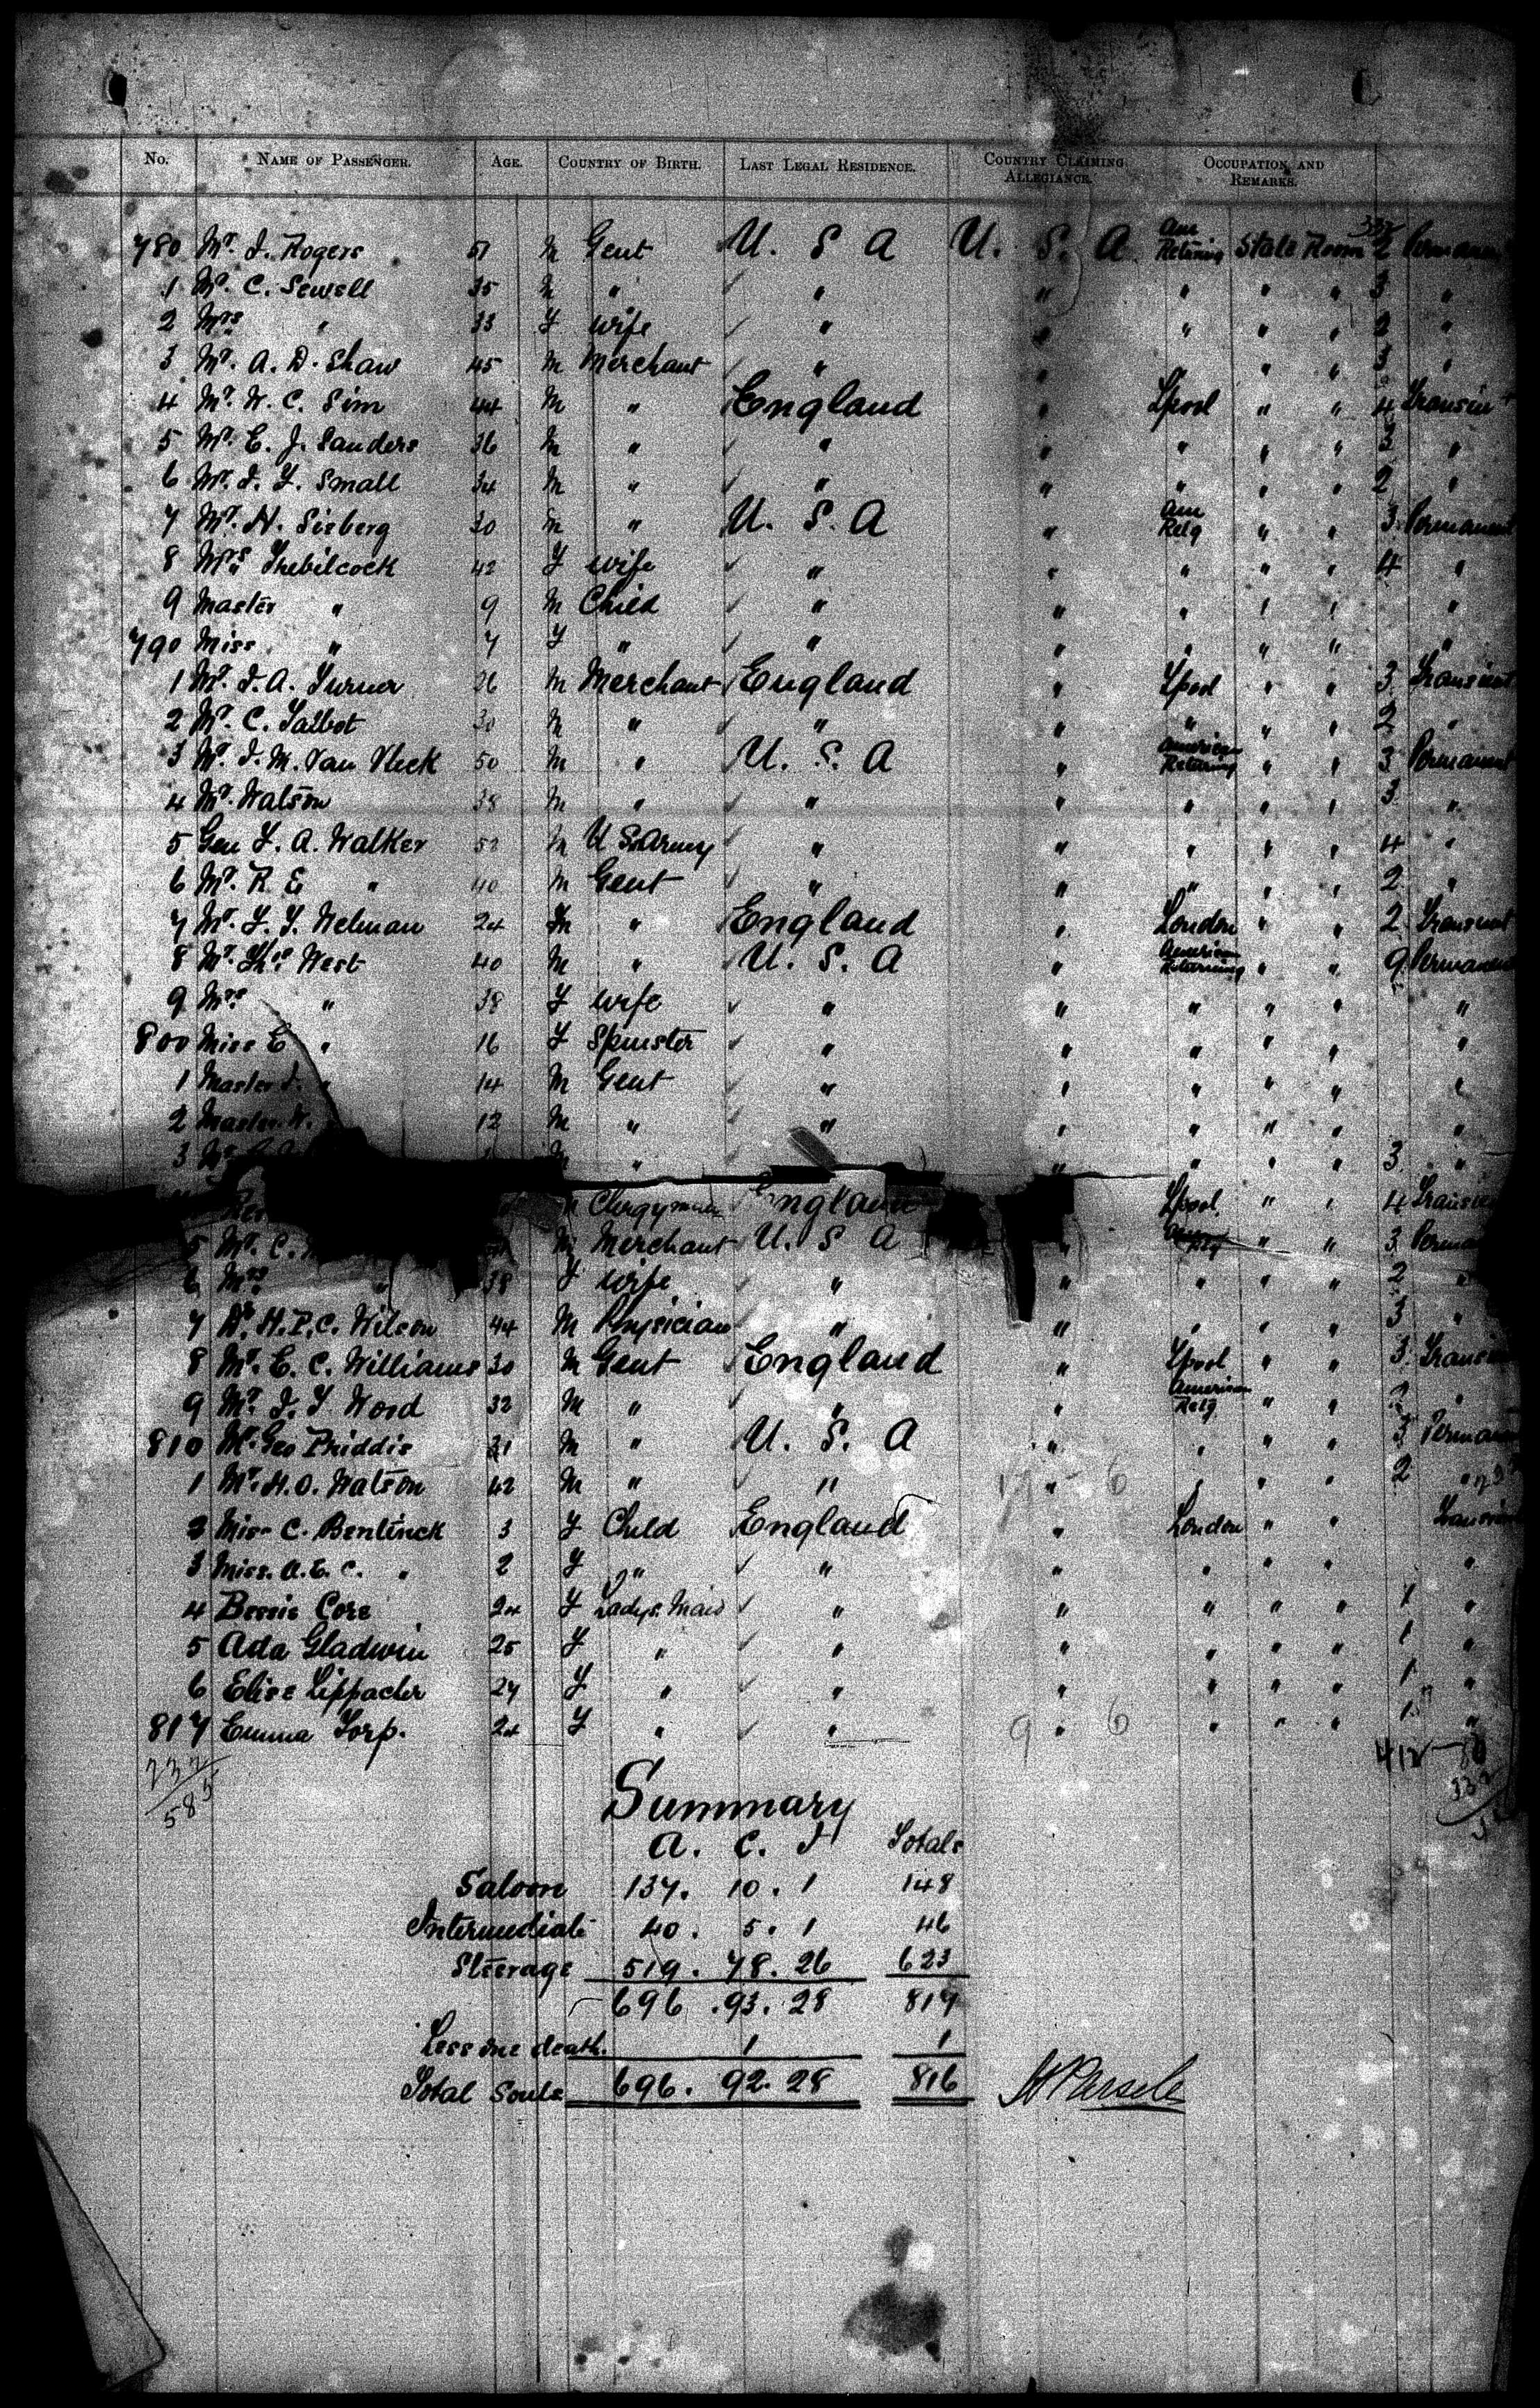 No. NAME OF PASSENGER. AGE. COUNTRY OF BIRTH. LAST LEGAL RESIDENCE. COUNTRY CLAIMING ALLEGIANCE. OCCUPATION AND REMARKS.
780 Mr. J. Rogers 51 M Gent U. S A U. S. A Am Returning State Room 2
1 Mr. C. Sewell 35 M " " " " " " 3 "
2 Mrs " 33 F wife " " " " " 2 "
3 Mr. A. D. Shaw 45 M Merchant " " " " 3 "
4 Mr. W. C. Sim 44 M " England " Lpool " " 4 Transient
5 Mr. E. J. Sanders 36 M " " " " " " "
6 Mr. J. F. Small 34 M " " " " " " 2 "
7 Mr. H. Sieberg 30 M " U. S. A " Am Retg " " 3 Permanent
8 Mrs Trebilcock 42 F wife " " " " " 4 "
9 Master " 9 M Child " " " " " "
790 Miss " 7 F " " " " " " "
1 Mr. J. A. Turner 26 M Merchant England " Lpool " " 3 Transient
2 Mr. C. Talbot 30 M " " " " " " 2 "
3 Mr. J. M. Van Vleck 50 M " U. S. A " American Returning " " 3 Permanent
4 Mr. Watson 38 M " " " " " " 3 "
5 Gen F. A. Walker 52 M U S. Army " " " " " 4 "
6 Mr. R. E. " 40 M Gent " " " " " 2 "
7 Mr. F. T. Welman 24 M " England " London " " 2 Transient
8 Mr. Thos West 40 M " U. S. A " American Returning " " 9 Permanent
9 Mrs " 38 F wife " " " " " "
800 Miss E " 16 F Spinster " " " " " "
1 Master J. " 14 M Gent " " " " " "
2 Master W. 12 M " " " " " " "
3 M " " " " " 3 "
Clergyman England Lpool " " 4
5 Mr. C. Merchant U. S A " Retg " " 3
6 Mrs " 38 F wife " " " " " 2 "
7 Dr. H. P. C. Wilson 44 M Physician " " " " " 3 "
8 Mr. E. C. Williams 30 M Gent England " Lpool " " 3
9 Mr. J. F Wood 32 M " " " American Retg " " "
810 Mr. Geo Priddis 31 M " U. S. A " " " " 3
1 Mr. H. O. Watson 42 M " " " 6 " " " 2 "
2 Miss C. Bentinck 3 F Child England " London " " Transient
3 Miss. A. E. C. " 2 F " " " " " " "
4 Bessie Core 24 F Ladys Maid " " " " " 1 "
5 Ada Gladwin 25 F " " " " " " 1 "
6 Elise Lippacher 27 F " " " " " " 1 "
817 Emma Torp. 24 F " " 9 " 6 " " " 1 "
232
585
Summary
A. C. I Totals
Saloon 137. 10. 1 148
Intermediate 40. 5. 1 46
Steerage 519. 78. 26 623
696. 93. 28 817
Less one death. 1 1
Total Souls 696. 92. 28 816